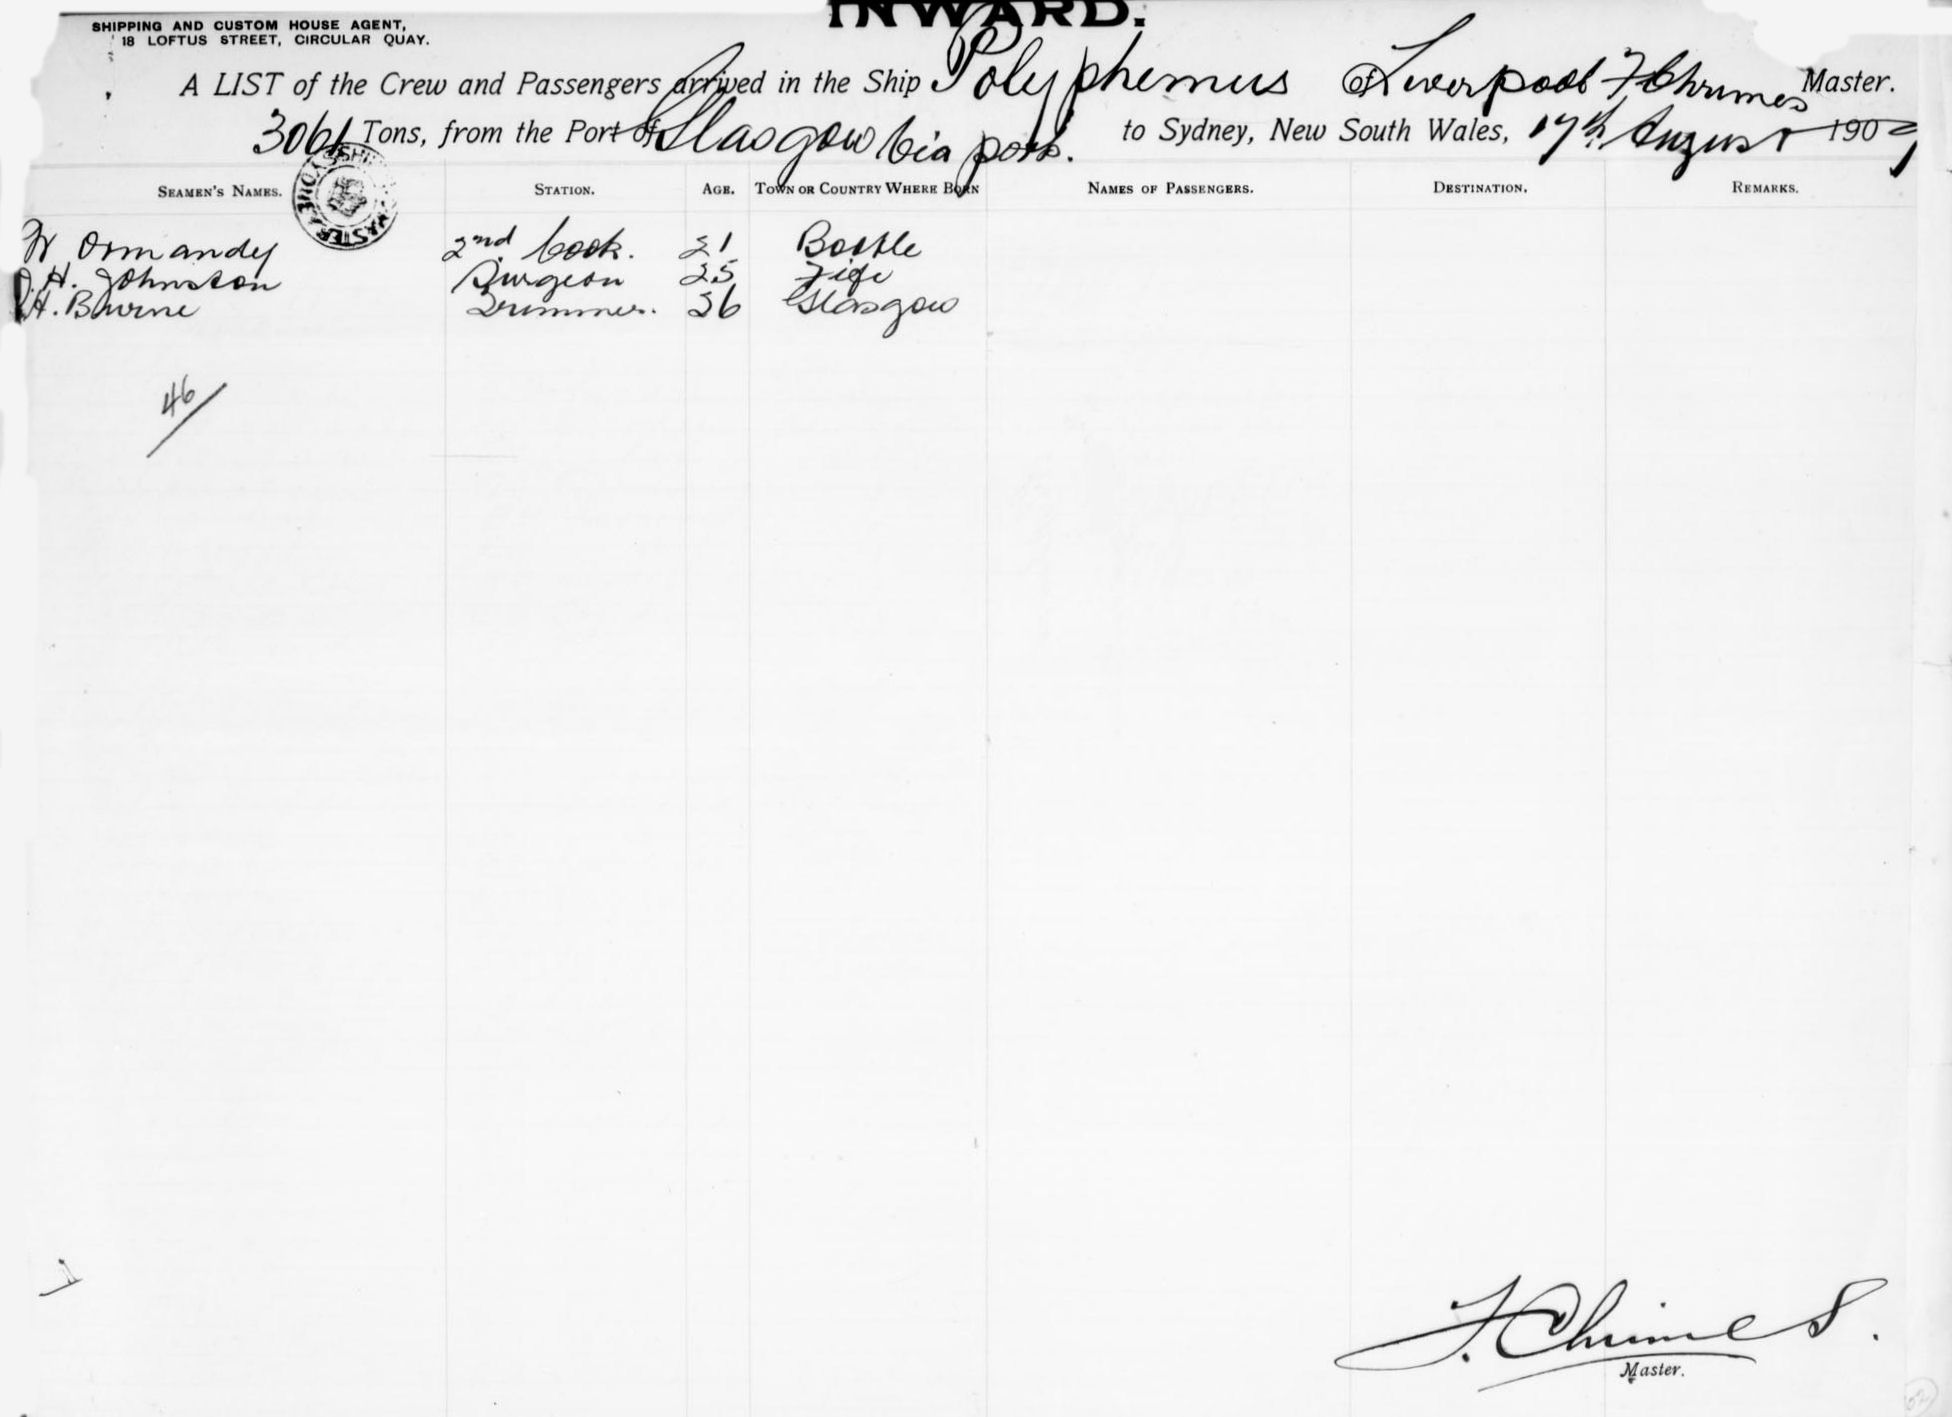 INWARD.
SHIPPING AND CUSTOM HOUSE AGENT,
18 LOFTUS STREET, CIRCULAR QUAY.
A LIST of the Crew and Passengers arrived in the Ship Polyphemus of Liverpool F Chrimes Master.
3061 Tons, from the Port of Glasgow via ports. to Sydney, New South Wales, 17th August 1909
SEAMEN'S NAMES. STATION. AGE. TOWN OR COUNTRY WHERE BORN NAMES OF PASSENGERS. DESTINATION. REMARKS.
W Ormandy 2nd Cook. 21 Bootle
J. H. Johnston Surgeon 25 Fife
H. Bourne 36 Glasgow
46
F. Chrimes.
Master.